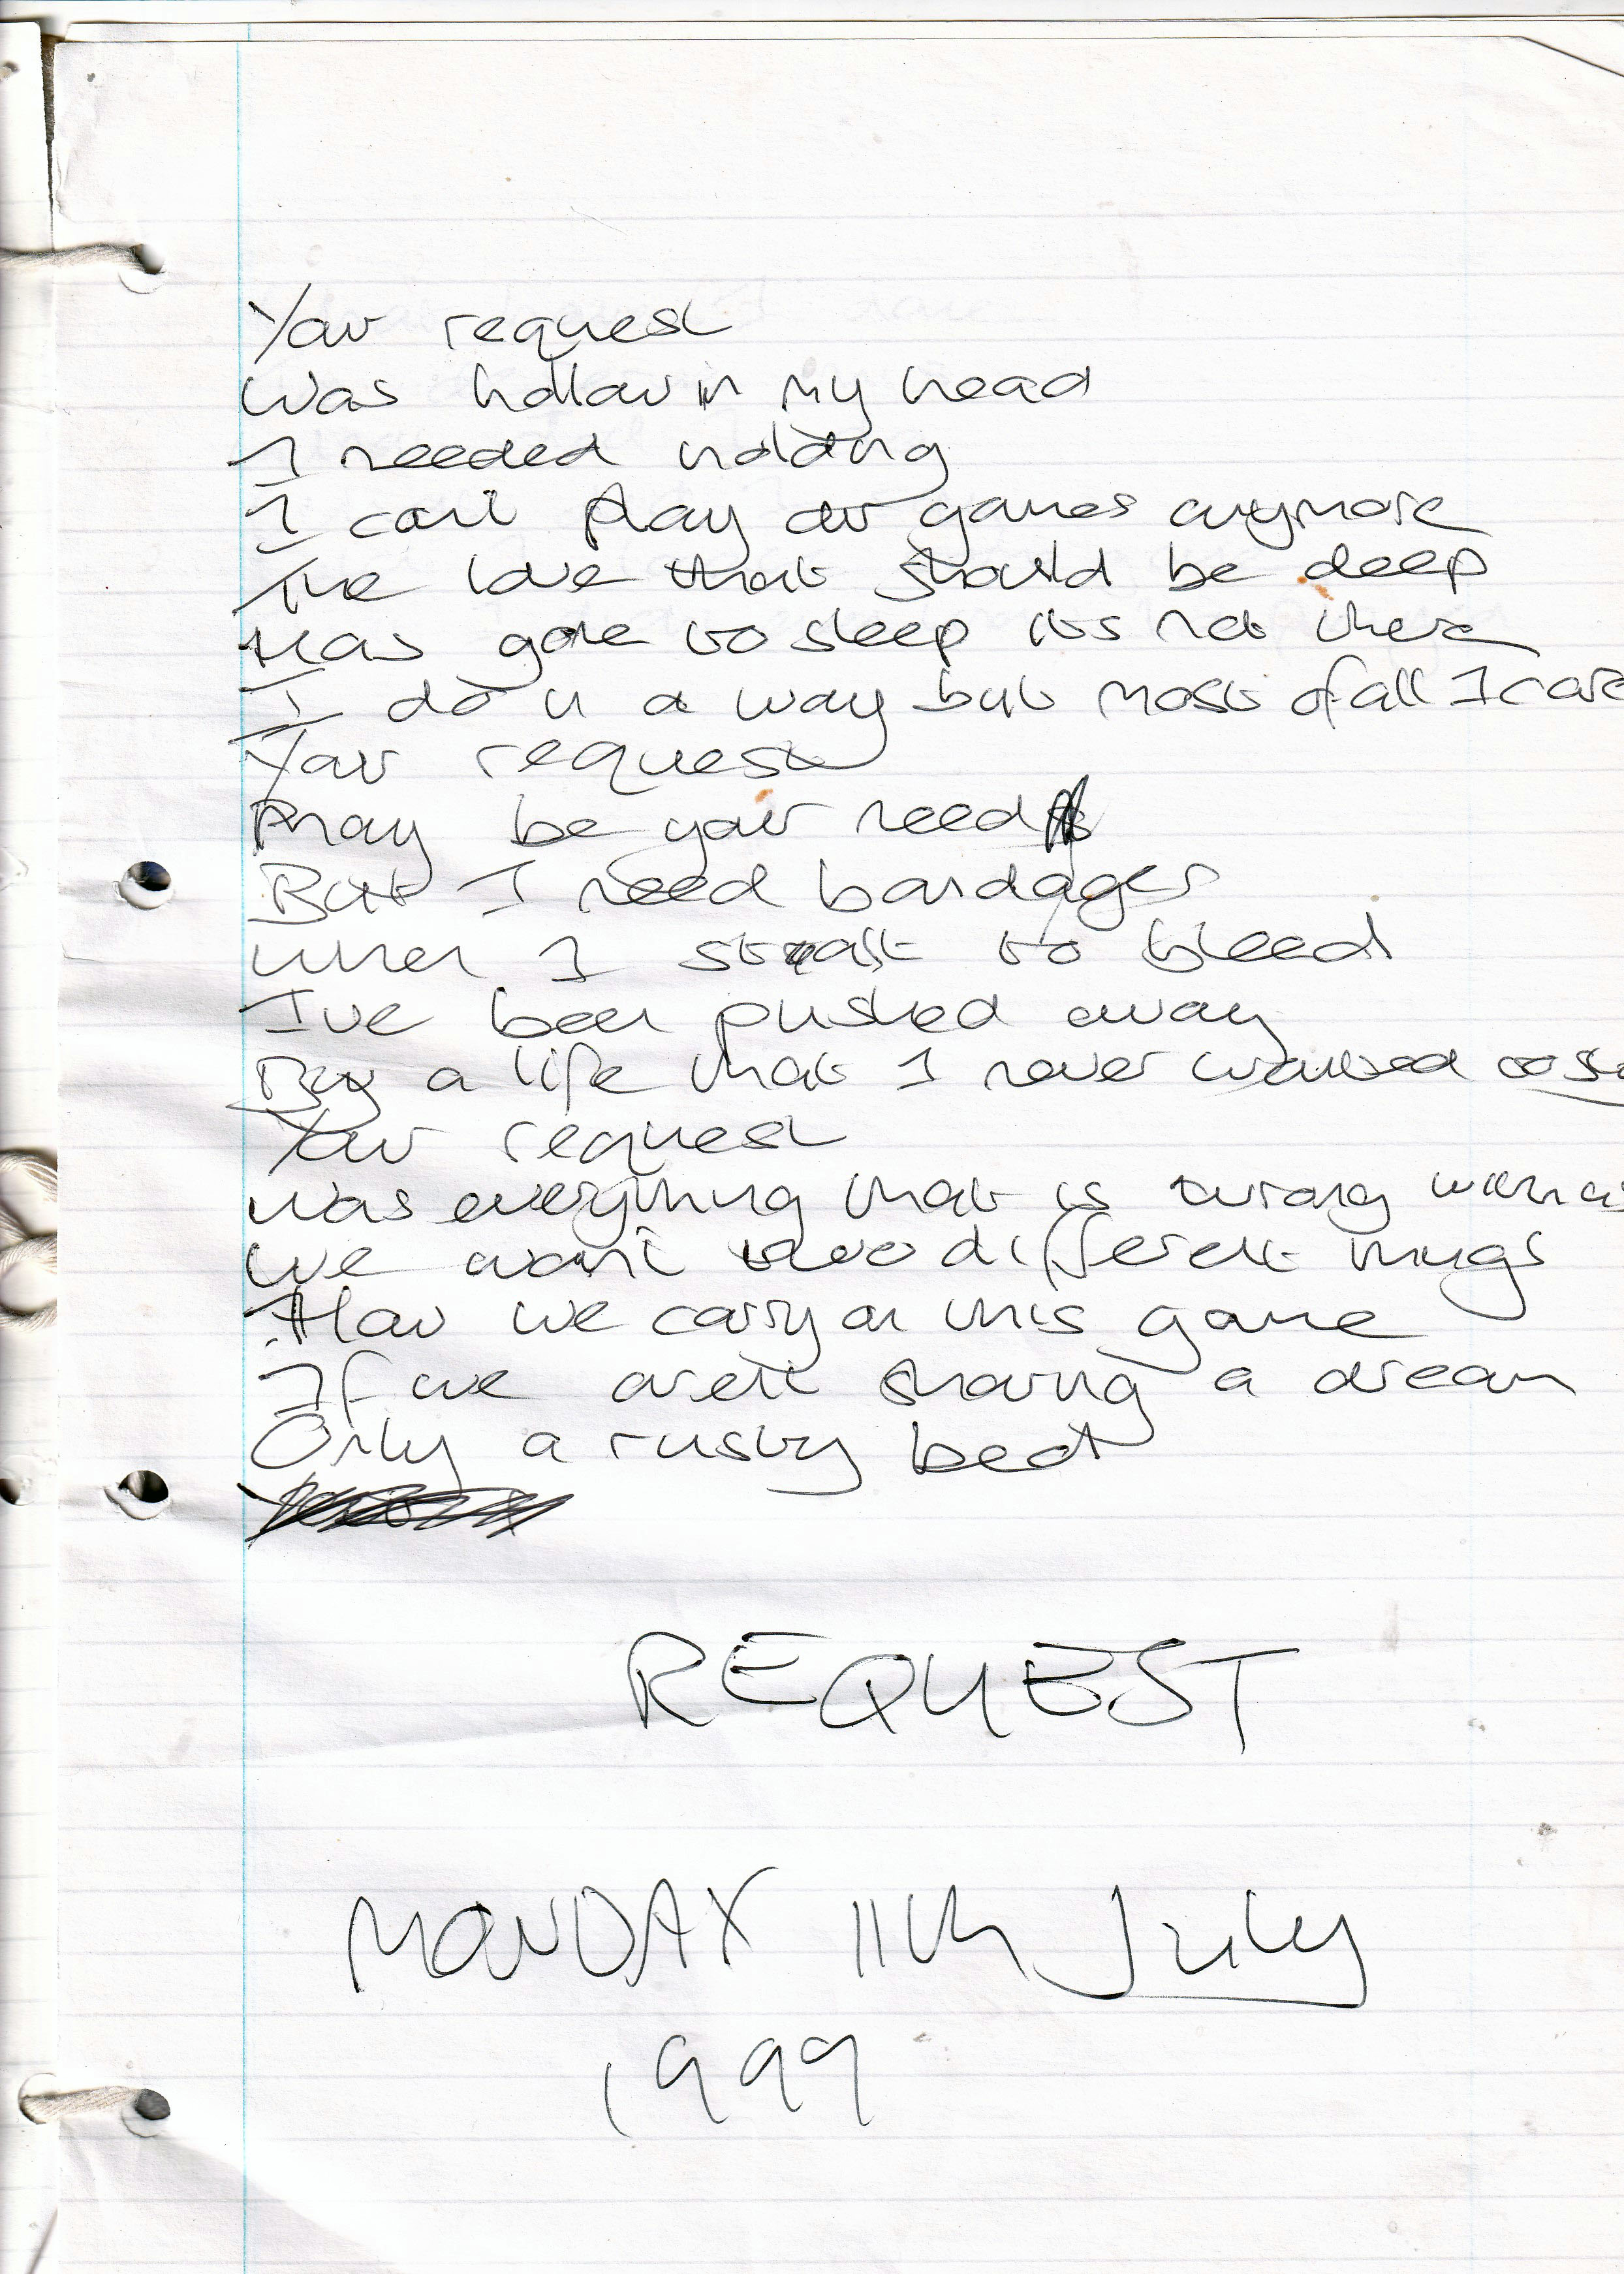 Your request
Was hollow in my head
I needed holding
I can't play our games anymore
The love that should be deep
Has gone to sleep its not there
I do in a way but most of all I care
Your request
May be your need
But I need bandages
When I start to bleed
I've been pushed away
By a life that I never wanted to
Your request
Was everything that is wrong with us
We want two different things
How we carry on this game
If we aren't sharing a dream
Only a rusty bed
REQUEST
MONDAY 11th July
1999